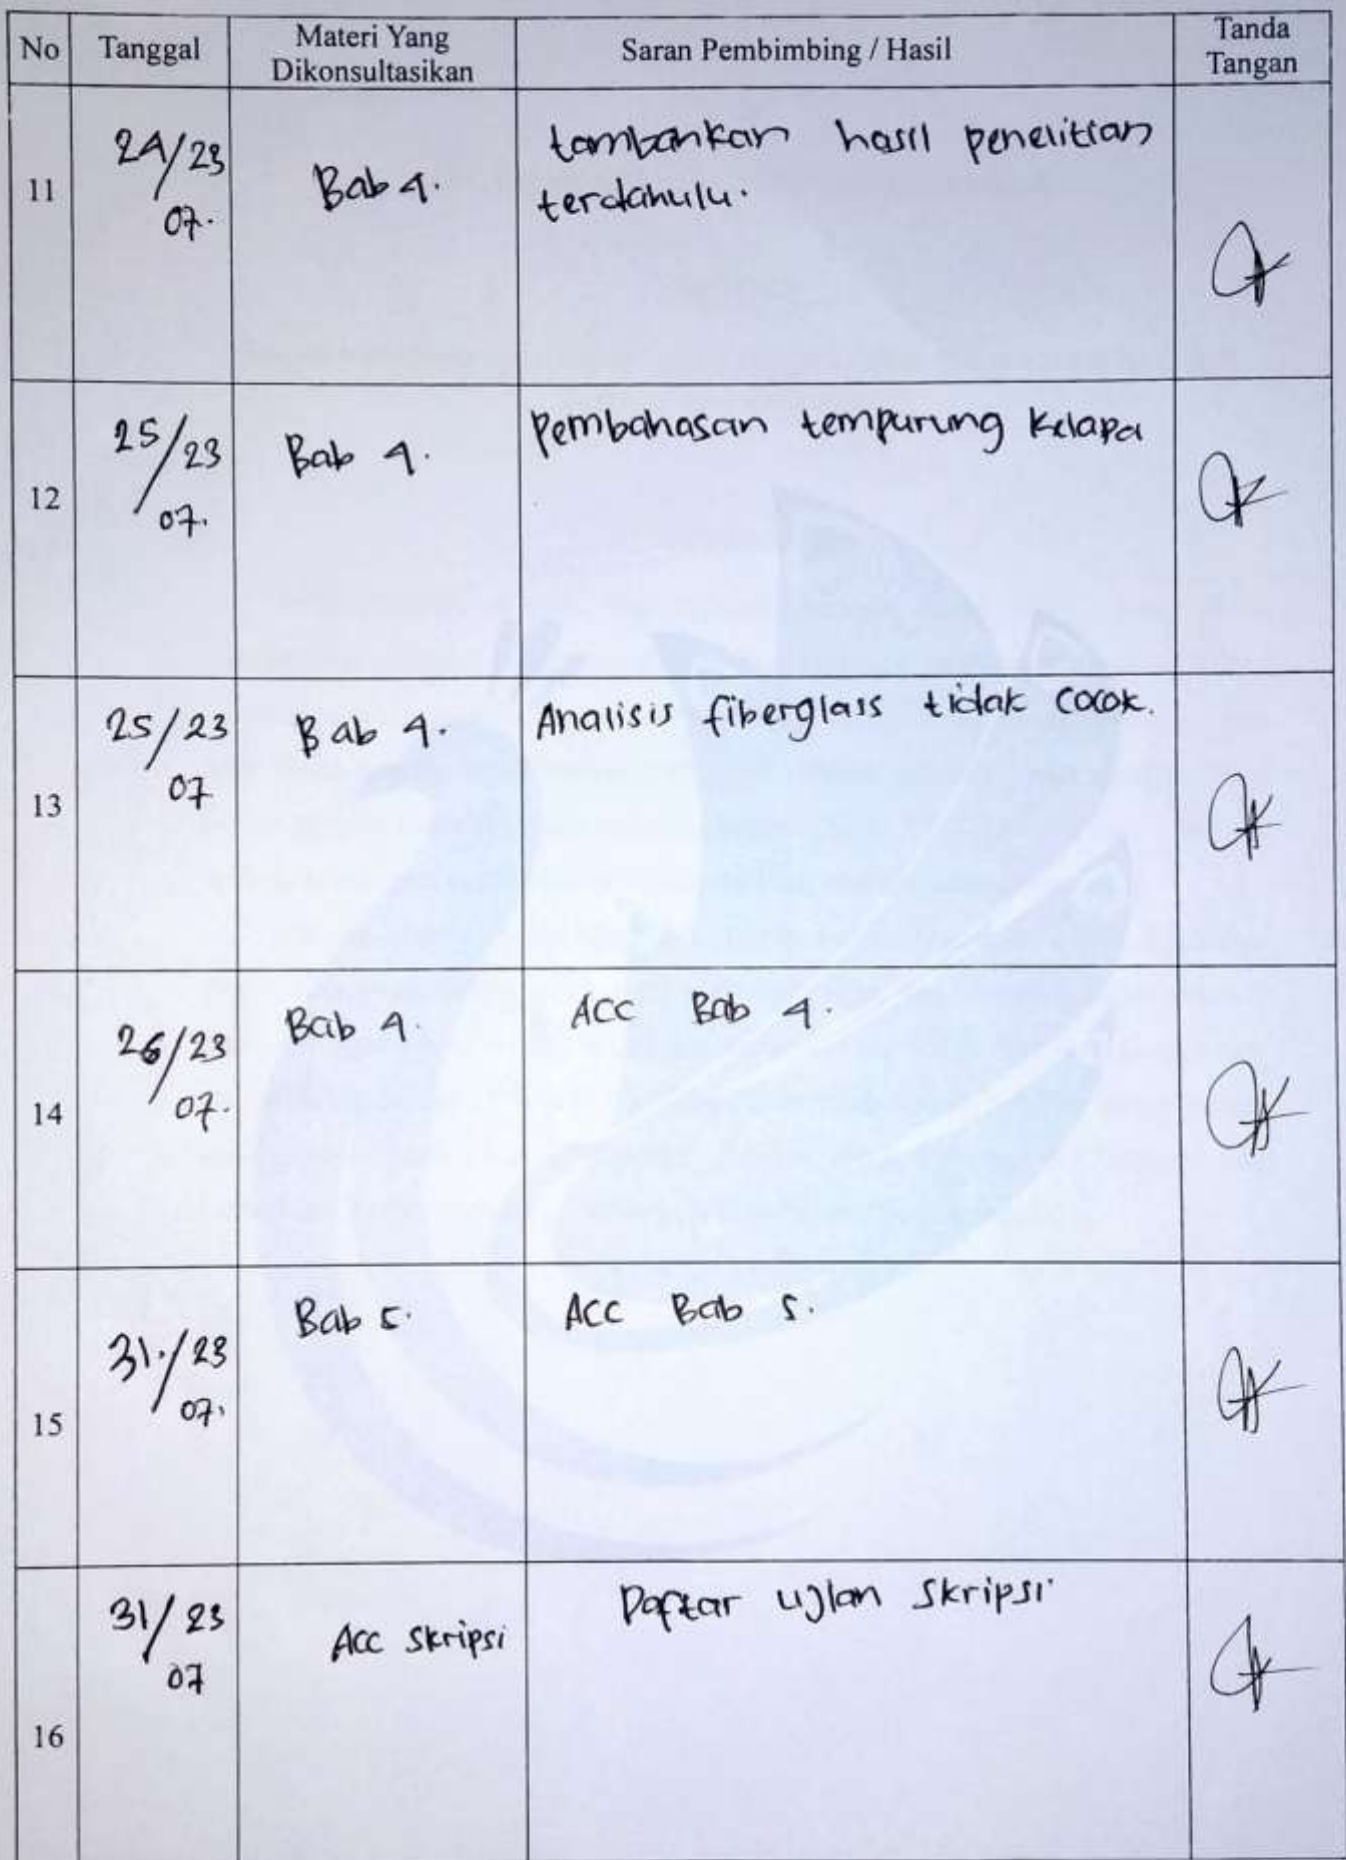 No Tanggal Materi Yang Dikonsultasikan Saran Pembimbing / Hasil Tanda Tangan
11 24/23 07. Bab 4. tambahkan hasil penelitian
terdahulu.
12 25/23 07. Bab 4. Pembahasan tempurung kelapa
13 25/23 07 Bab 4. Analisis fiberglass tidak cocok.
14 26/23 07. Bab 4. ACC Bab 4.
15 31./23 07. Bab 5. ACC Bab 5.
16 31/23 07 Acc Skripsi Daftar ujian Skripsi